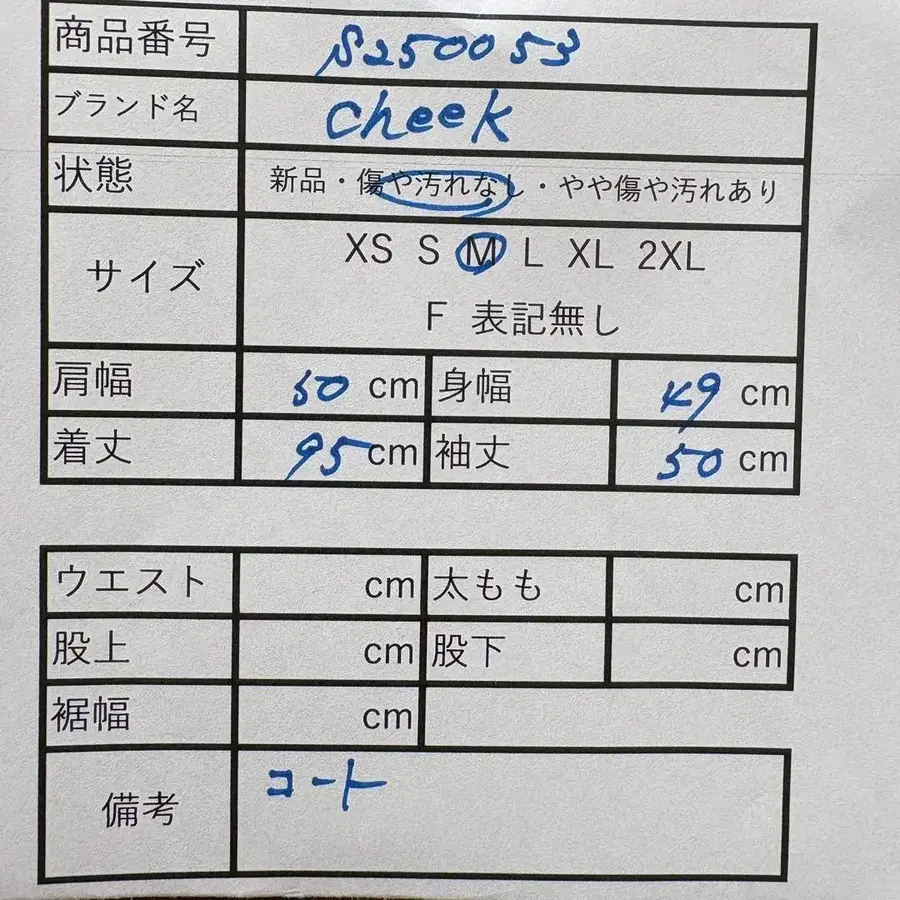 商品番号 S2500 53
ブランド名 Cheek
状態 新品・傷や汚れなし・やや傷や汚れあり
サイズ XS S M L XL 2XL
F 表記無し
肩幅 50 cm 身幅 49 cm
着丈 95 cm 袖丈 50 cm
ウエスト cm 太もも cm
股上 cm 股下 cm
裾幅 cm
備考 コート